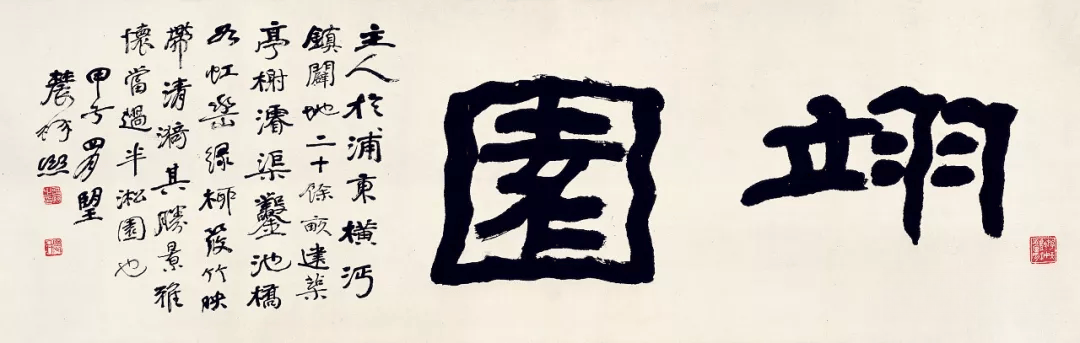 翊園
主人於浦東橫沔
鎮闢地二十餘畝建築
亭榭濬渠鑿池橋
如虹垂綠柳筱竹映
帶清漪其勝景雅
懷當過半淞園也
甲子四月望
農髯熙